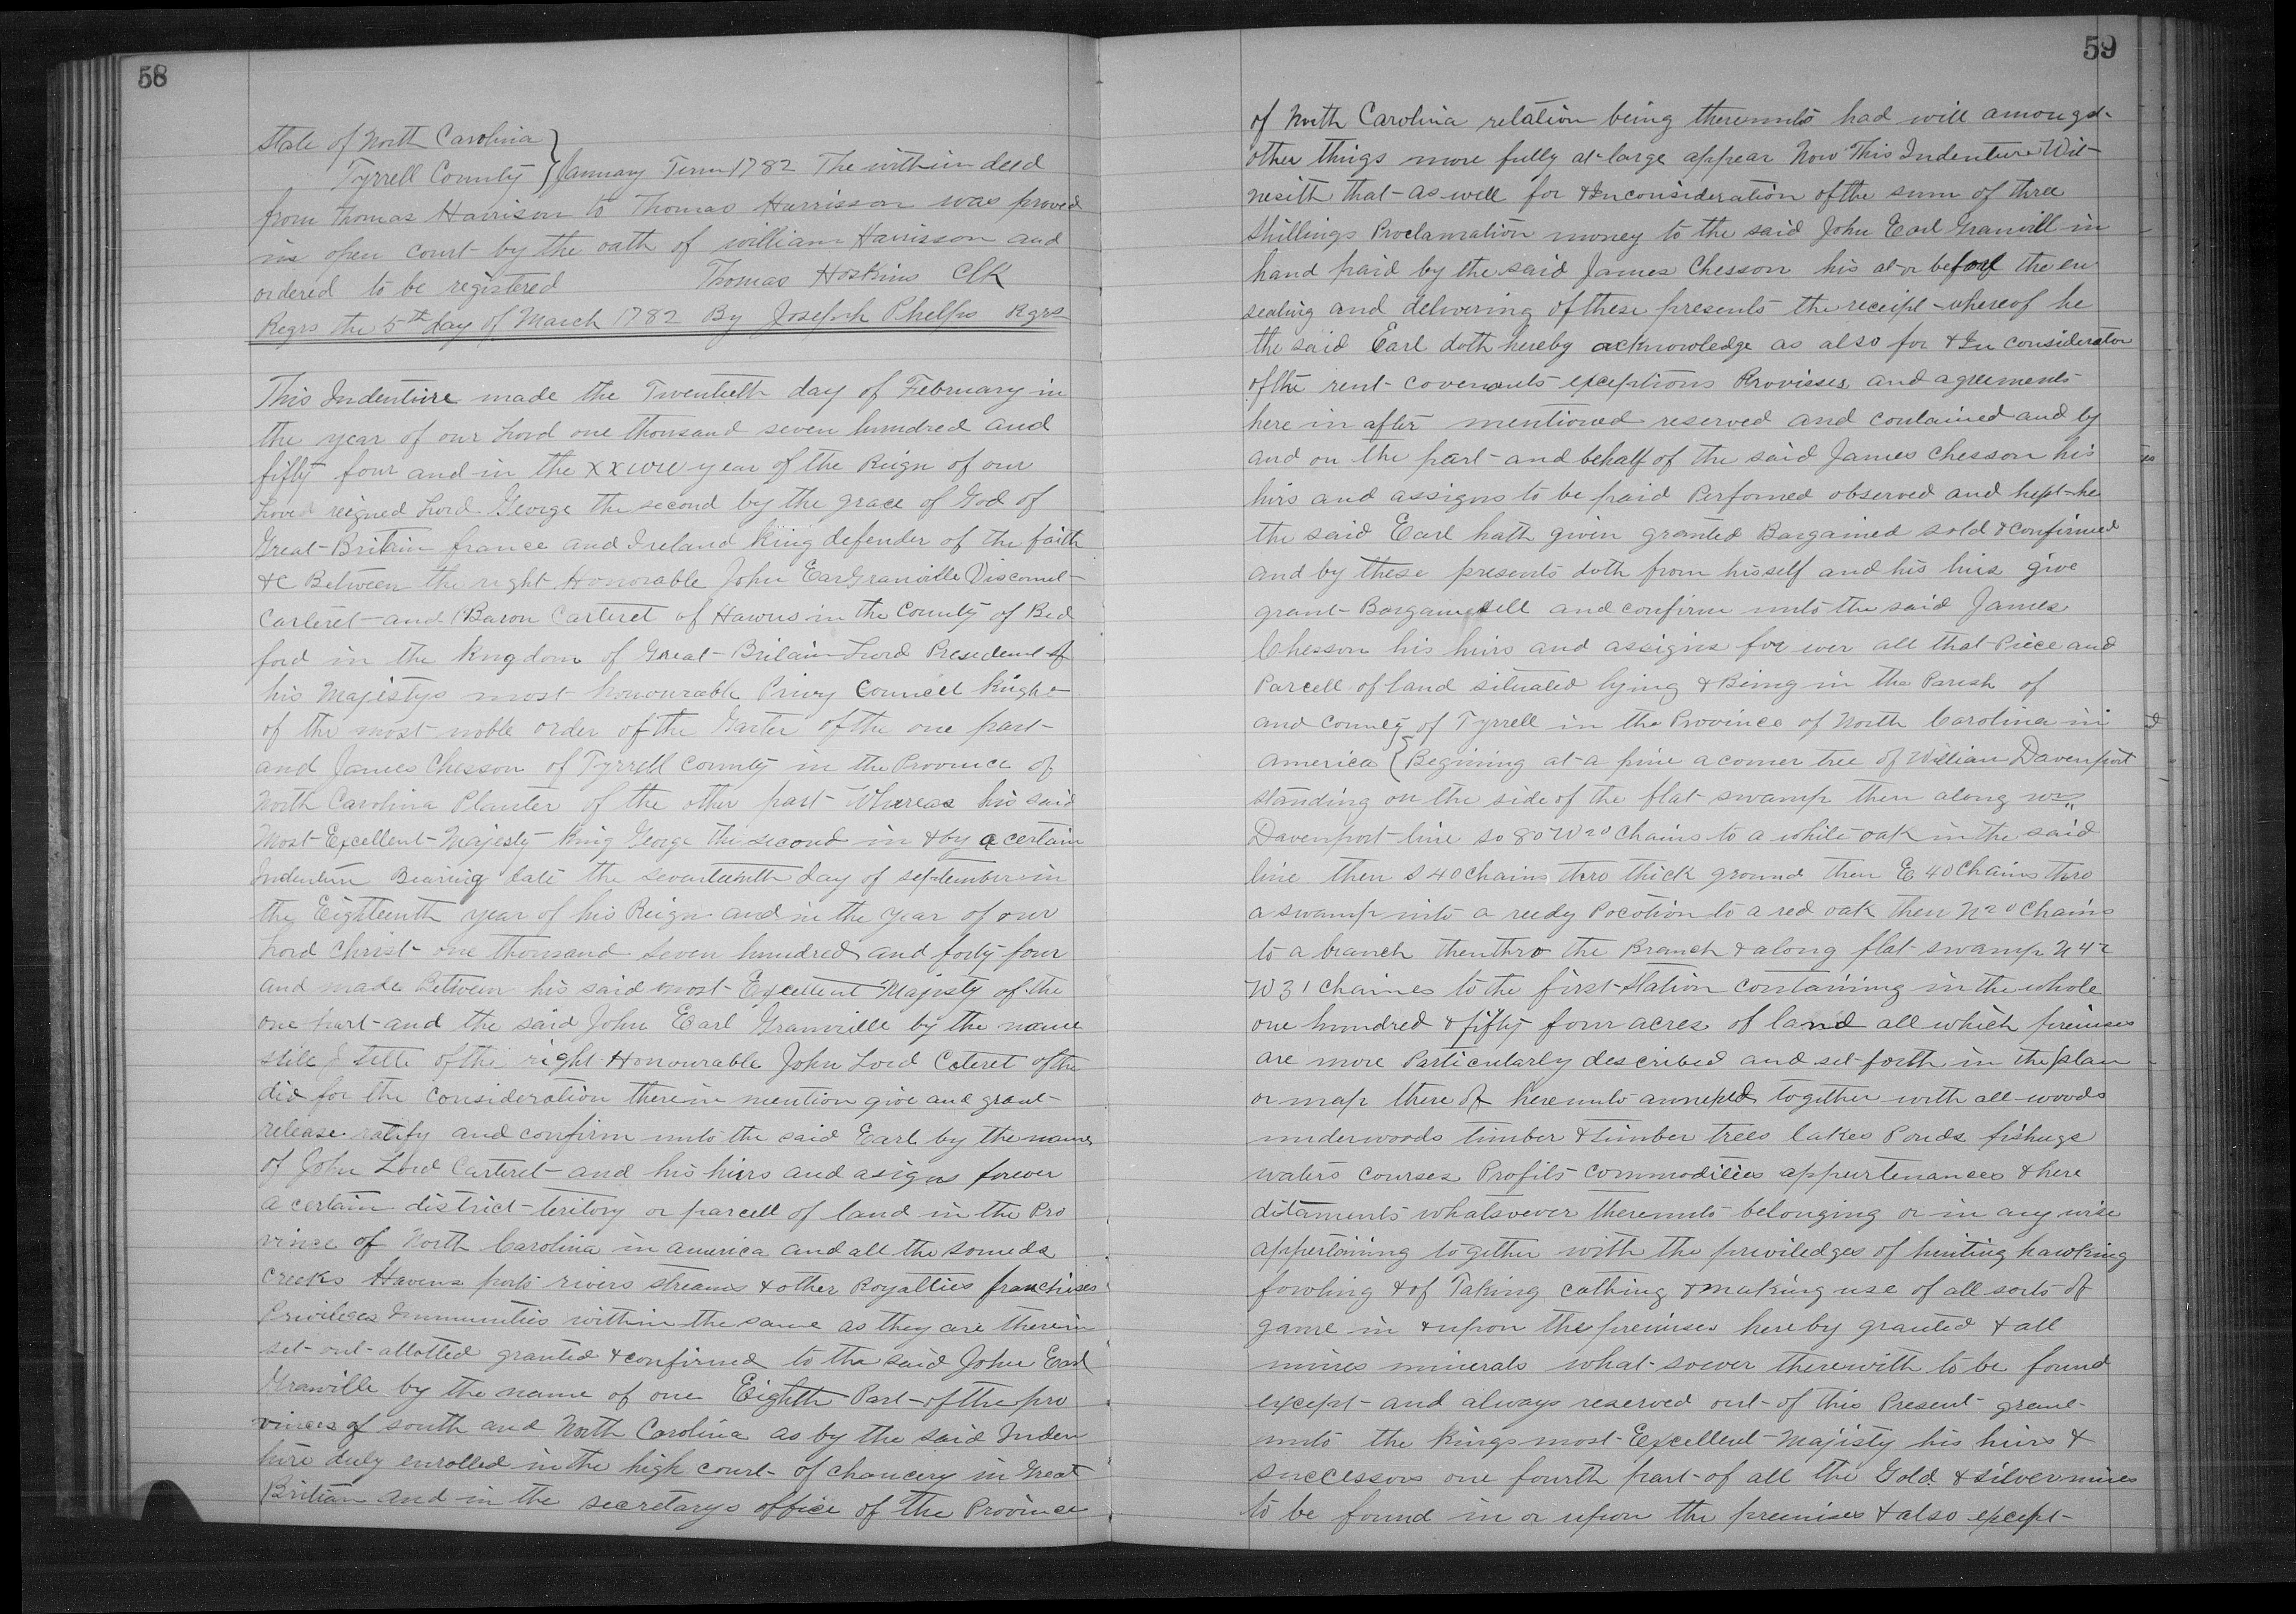 58
State of North Carolina }
Tyrrell County } January Term 1782 The within deed
from Thomas Harrison to Thomas Harrisson was proved
in open court by the oath of william Harrisson and
ordered to be registered Thomas Hoskins Clk
Regrs the 5th day of March 1782 By Joseph Phelps Rgrs
This Indentuire made the Twentieth day of February in
the year of our Lord one thousand seven hundred and
fifty four and in the year of the Reign of our
reigned Lord George the second by the grace of God of
Great Britain france and Ireland King defender of the faith
&c Between the right Honorable John Ear Granville Viscount
Carteret and Baron Carteret of Hawns in the County of Bed
ford in the kngdom of Great Britain Lord President of
his Majestys most honourable Privy Council Knight
of the most noble order of the Garter of the one part
and James Chesson of Tyrrell County in the Province of
North Carolina Planter of the other part Whereas his said
Most Excellent Majesty King George the second in & by a certain
Indenture Bearing date the seventeenth day of september in
the Eighteenth year of his Reign and in the year of our
Lord Christ one thousand seven hundred and forty four
and made Between his said most Excellent Majesty of the
one part and the said John Earl Granville by the name
stile & title of the right Honourable John Lord Cateret of the
did for the consideration therein mention give and grant
release ratify and confirm unto the said Earl by the name
of John Lord Carteret and his hirs and asigns forever
a certain district teritory or parcell of land in the Pro
vince of North Carolina in america and all the
Creeks Havens ports rivers streams & other Royalties franchises
Privileges Immunities within the same as they are therein
set out allotted granted & confirmed to the said John Earl
Granville by the name of one Eighth Part of the pro
vinces of south and North Carolina as by the said Inden
ture duly enrolled in the high court of chancery in Great
Britian and in the secretarys office of the Province
59
of North Carolina relation being thereunto had will amongst
other things more fully at large appear Now This Indenture Wit
nesith that as well for & In consideration of the sum of three
Shillings Proclamation money to the said John Earl Granvill in
hand paid by the said James Chesson his at or before the en
sealing and delivering of these presents the receipt whereof he
the said Earl doth hereby acknowledge as also for & In consideration
of the rent covenants exceptions Provisses and agreements
here in after mentioned reserved and contained and by
and on the part and behalf of the said James Chesson his
hirs and assigns to be paid Perfomed observed and kept he
the said Earl hath given granted Bargained sold & confirmed
and by these presents doth from hisself and his hirs give
grant Bargain sell and confirm unto the said James
Chesson his heirs and assigns for ever all that Piece and
Parcell of land situated lying & Being in the Parish of
and County of Tyrrell in the Province of North Carolina in
America { Begining at a pine a corner tree of William Davenport
standing on the side of the flat swamp then along wm
Davenport line so 80 W 20 Chains to a white oak in the said
line then S 40 chains thro thick ground then E 40 Chains thro
a swamp into a reedy Pocotion to a red oak then N 20 Chains
to a branch then thro the Branch & along flat swamp N 42
W 31 Chaines to the first Station containing in the whole
one hundred & fifty four acres of land all which premises
are more Particularly described and set forth in the plan
or map there of hereunto annexed together with all woods
underwoods timber & timber trees lakes Ponds fishings
waters courses Profits commodities appurtenances & here
ditaments whatsoever thereunto belonging or in any wise
appertaining together with the priviledges of hunting hawking
fowling & of Taking cathing & making use of all sorts of
game in & upon the premises hereby granted & all
mines minerals what soever therewith to be found
except and always reserved out of this Present grant
unto the kings most Excellent Majisty his heirs &
successors one fourth part of all the Gold & silver mines
to be found in or upon the premises & also except